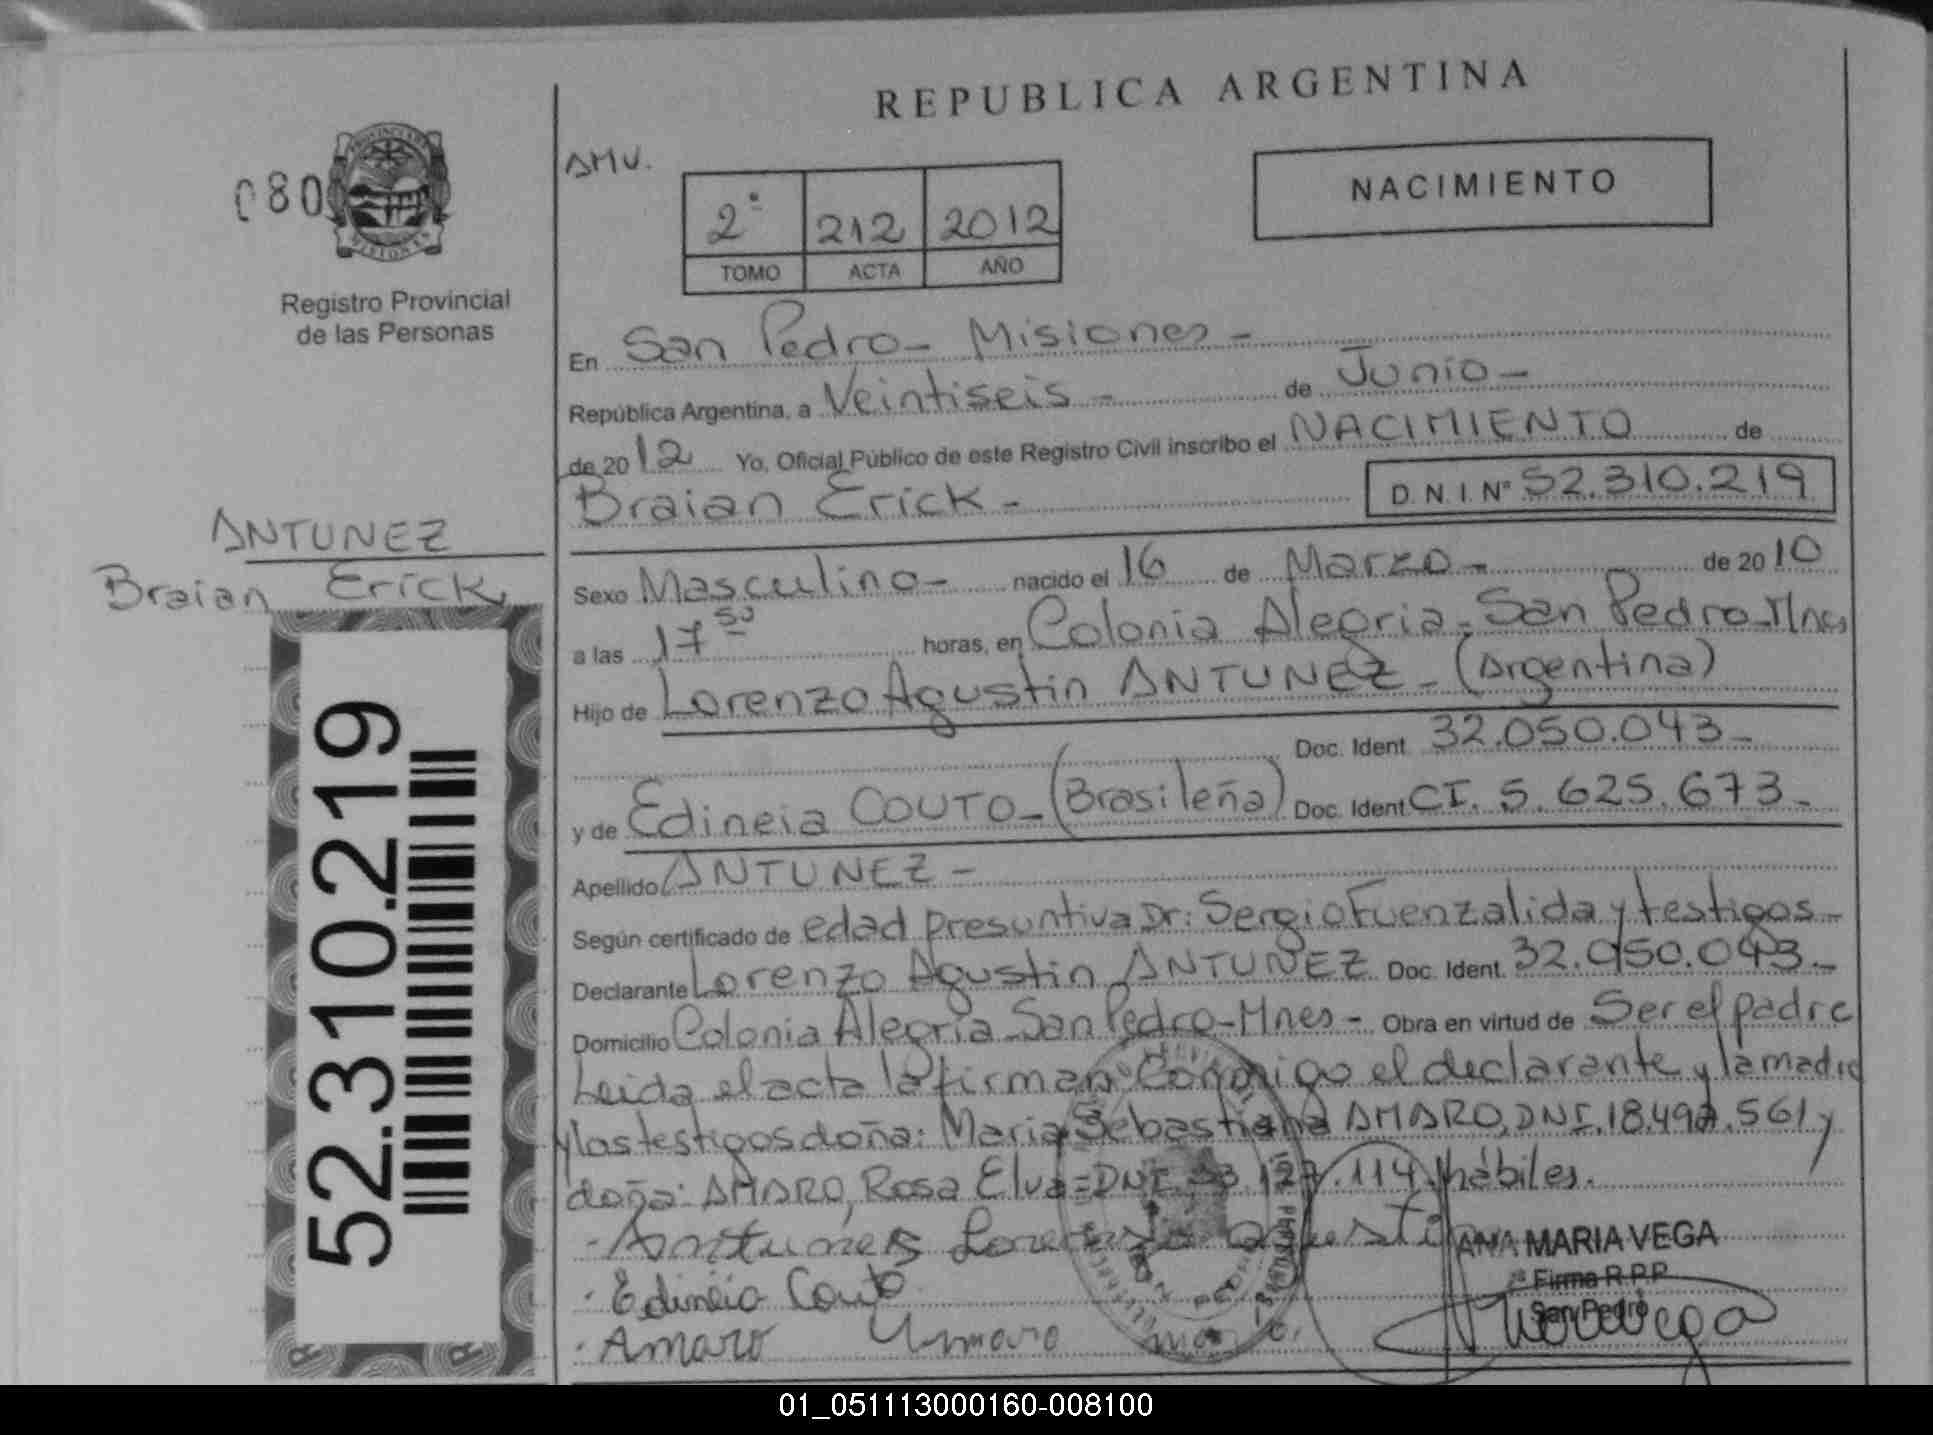 REPUBLICA ARGENTINA
080
Registro Provincial
de las Personas
AMV.
2° 212 2012
TOMO ACTA AÑO
NACIMIENTO
En San Pedro - Misiones -
República Argentina, a Veintiseis - de Junio -
de 2012 Yo, Oficial Público de este Registro Civil inscribo el NACIMIENTO de
Braian Erick - D.N.I. N° 52.310.219
ANTUNEZ
Braian Erick
52.310.219
Sexo Masculino - nacido el 16 de Marzo - de 2010
a las 17 50 horas, en Colonia Alegria - San Pedro - Mnes
Hijo de Lorenzo Agustin ANTUNEZ - (Argentina)
Doc. Ident. 32.050.043 -
y de Edineia COUTO - (Brasileña) Doc. Ident. CI. 5.625.673 -
Apellido ANTUNEZ -
Según certificado de edad presuntiva Dr: Sergio Fuenzalida y testigos -
Declarante Lorenzo Agustin ANTUNEZ Doc. Ident. 32.050.043 -
Domicilio Colonia Alegria San Pedro - Mnes - Obra en virtud de Ser el padre
Leida el acta la firman Conmigo el declarante y la madre
y las testigos doña: Maria Sebastiana AMARO, DNI. 18.492.561 y
doña: AMARO, Rosa Elva = DNI. 33.127.114 hábiles.
Antunes Lorenso agusti
ANA MARIA VEGA
Firma R.P.P
San Pedro
Edineia Couto
Amaro
01_051113000160-008100